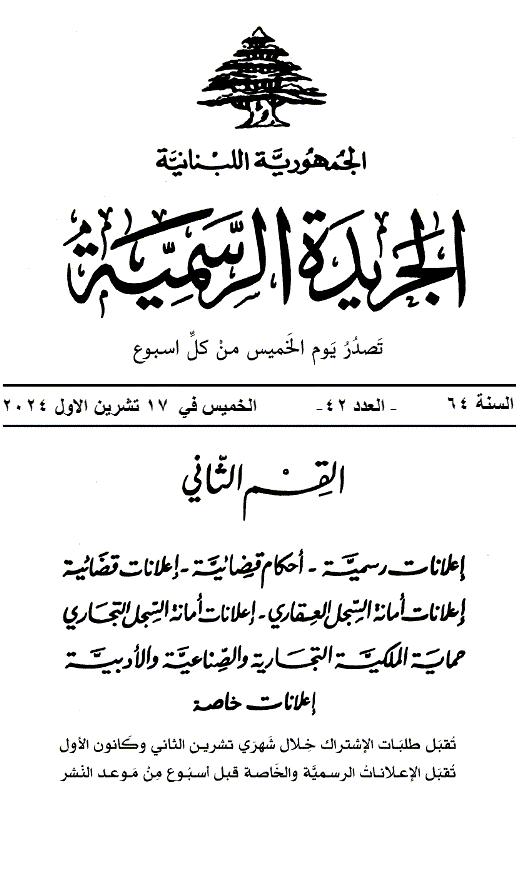 الجمهورية اللبنانية
الجريدة الرسمية
تصدر يوم الخميس من كل اسبوع
السنة ٦٤ - العدد ٤٢- الخميس في ١٧ تشرين الاول ٢٠٢٤
القسم الثاني
إعلانات رسمية - أحكام قضائية - إعلانات قضائية
إعلانات أمانة السجل العقاري - إعلانات أمانة السجل التجاري
حماية الملكية التجارية والصناعية والأدبية
إعلانات خاصة
تقبل طلبات الإشتراك خلال شهري تشرين الثاني وكانون الأول
تقبل الإعلانات الرسمية والخاصة قبل أسبوع من موعد النشر